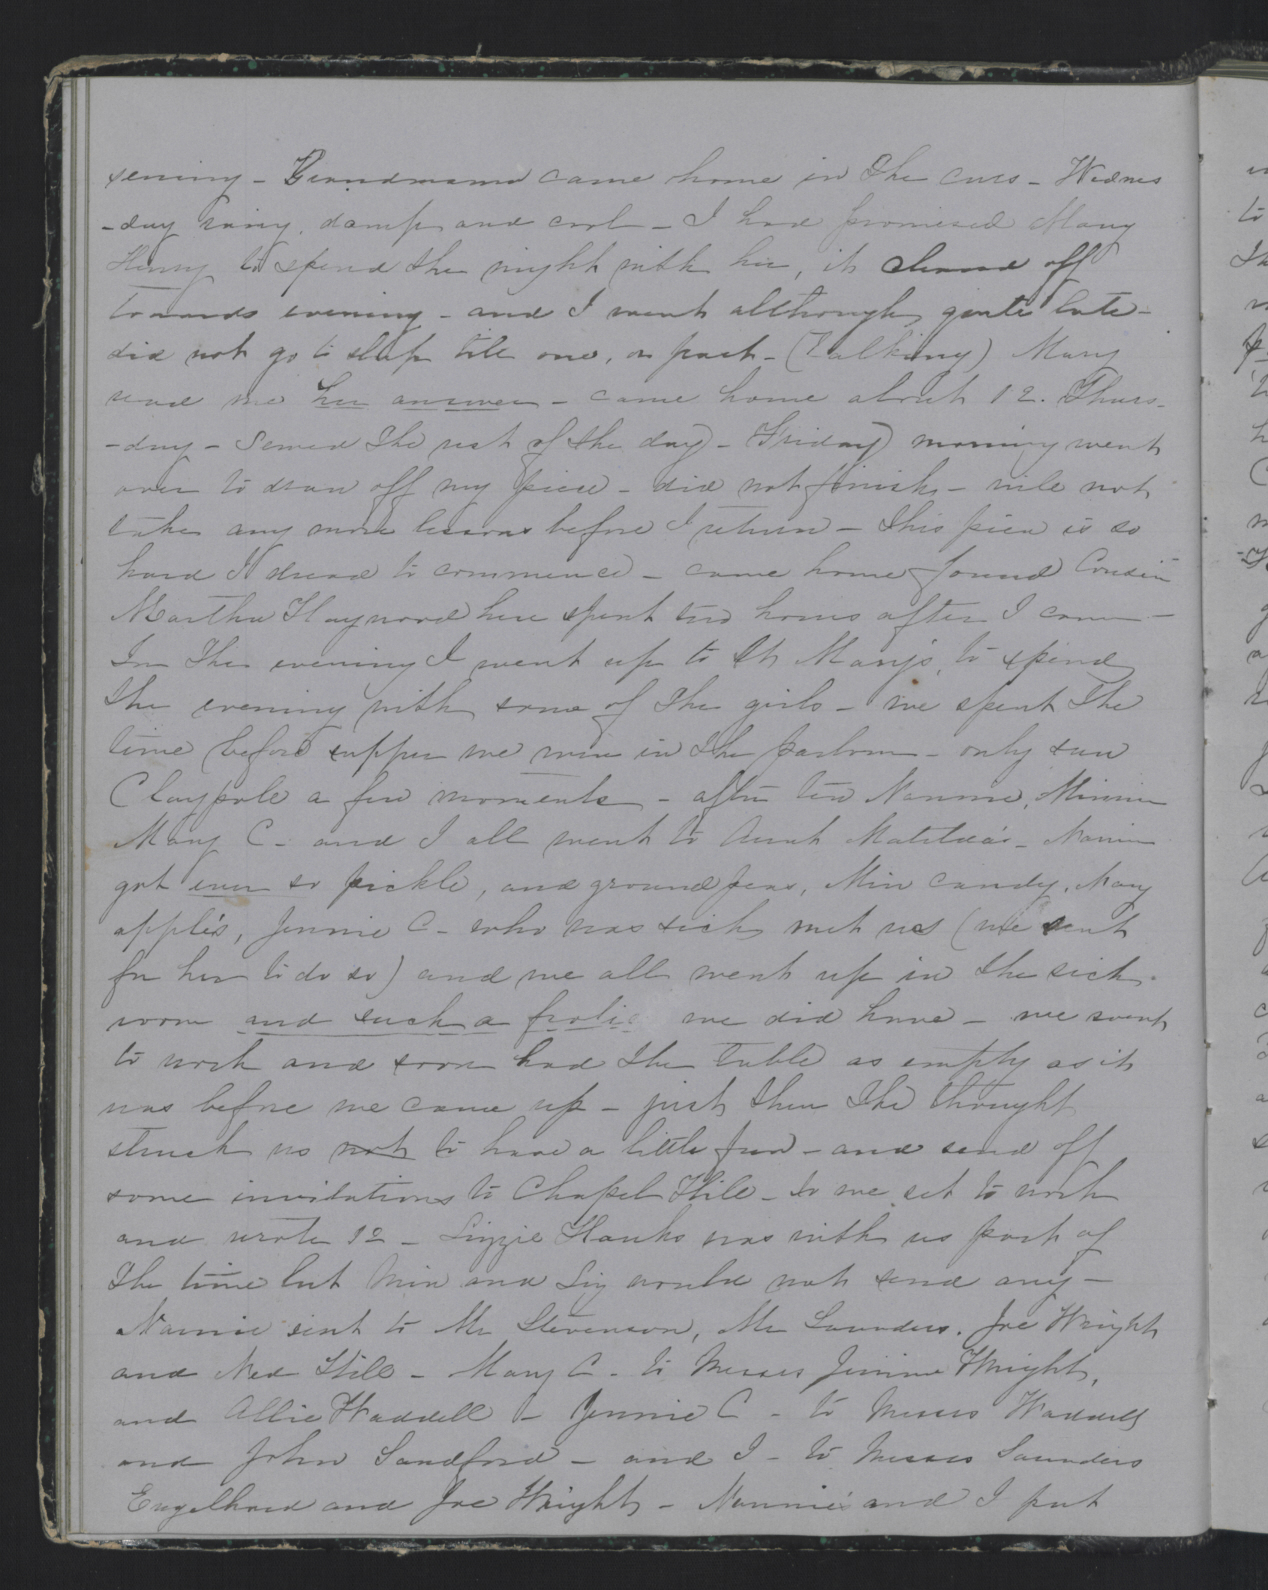 sewing - Grandmama came home in the cars - Wednes
-day rainy, damp and cool - I had promised Mary
Henry to spend the night with her, it cleared off
towards evening - and I went although quite late -
did not go to sleep till one, or past - (Talking) Mary
read me her answer - came home about 12. Thurs-
-day - Sewed the rest of the day - Friday morning went
over to draw off my piece - did not finish - will not
take any more lessons before I return - this piece is so
hard I dread to commence - came home found Cousin
Martha Haywood here spent two hours after I came -
In the evening I went up to St Mary's, to spend
the evening with some of the girls - we spent the
time before supper we were in the parlour - only saw
Claypole a few moments - after tea Nannie, Minnie
Mary C - and I all went to Aunt Matilda's - Nannie
got ever so pickle, and ground peas, Min candy, Mary
apple's, Jennie C - who was sick met us (we sent
for her to do so) and we all went up in the sick -
room and such a frolic we did have - we went
to work and soon had the table as empty as it
was before we came up - just then the thought
struck us not to have a little fun - and send off
some invitations to Chapel Hill - so we set to work
and wrote 12 - Lizzie Hanks was with us part of
the time but Min and Liz would not send any -
Nannie sent to Mr Stevenson, Mr Saunders, Joe Wright
and Ned Hill - Mary C - to Messrs Jimmie Wright,
and Allie Waddell - Jennie C - to Messrs Waddell
and John Sandford - and I - to Messrs Saunders
Engelhard and Joe Wright - Nannie's and I put